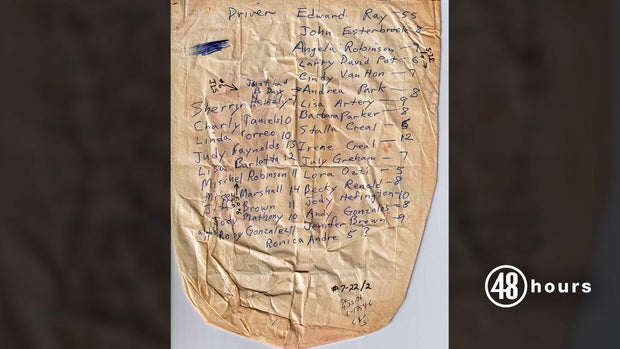 Driver Edward Ray - 55
John Esterbrook 8
Angela Robinson - 9
Larry David Pot - 6
Cindy Van Hon - 7
Just had
B Day → Andrea Park - 8
Sherry Hensly - 7
Lisa Artery - 9
Charly Daniels 10
Barbara Parker - 8
Linda Correo 10
Stalla Creal - 6
Judy Raynolds 13
Irene Creal - 12
Lisa Barletta 12
July Greham - 7
Mischel Robinson 11
Lora Ozzi - 5
Marshall 14
Becky Renold - 8
Brown 11
Jody Hefington - 10
Joey Matheny 10
Andy Gonzales - 8
Robby Gonzales 11
Jenifer Brown - 9
Ronica Andre 5 ?
#7-22/2
48 hours